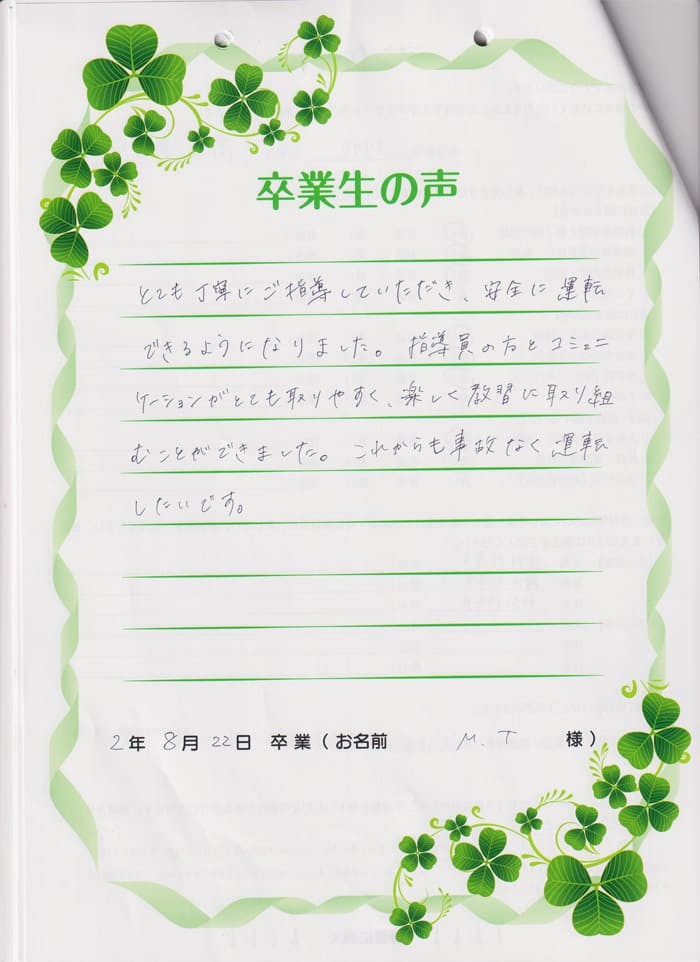 卒業生の声
とても丁寧にご指導していただき、安全に運転
できるようになりました。指導員の方とコミュニ
ケーションがとても取りやすく、楽しく教習に取り組
むことができました。これからも事故なく運転
したいです。
2年 8月 22日 卒業(お名前 M.T 様)